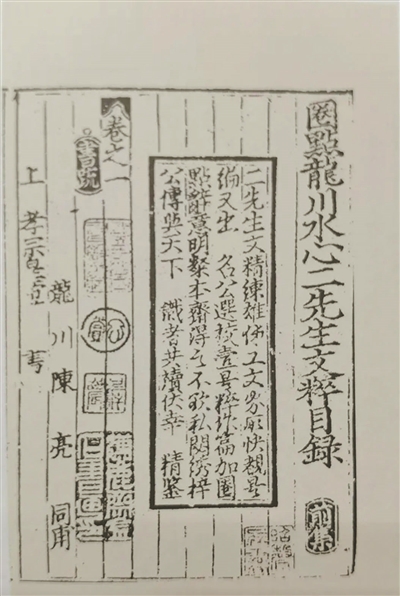 圈點龍川水心二先生文粹目錄
前集
二先生文精練雄偉工文所快覩是
編又出 名公選校壹是粹作篇加圈
點辭意明粲本齋得之不欲私閟綉梓
公傳與天下 識者共讀伏幸 精鑒
卷之一
書疏
龍川陳亮同甫
上 孝宗皇帝 書